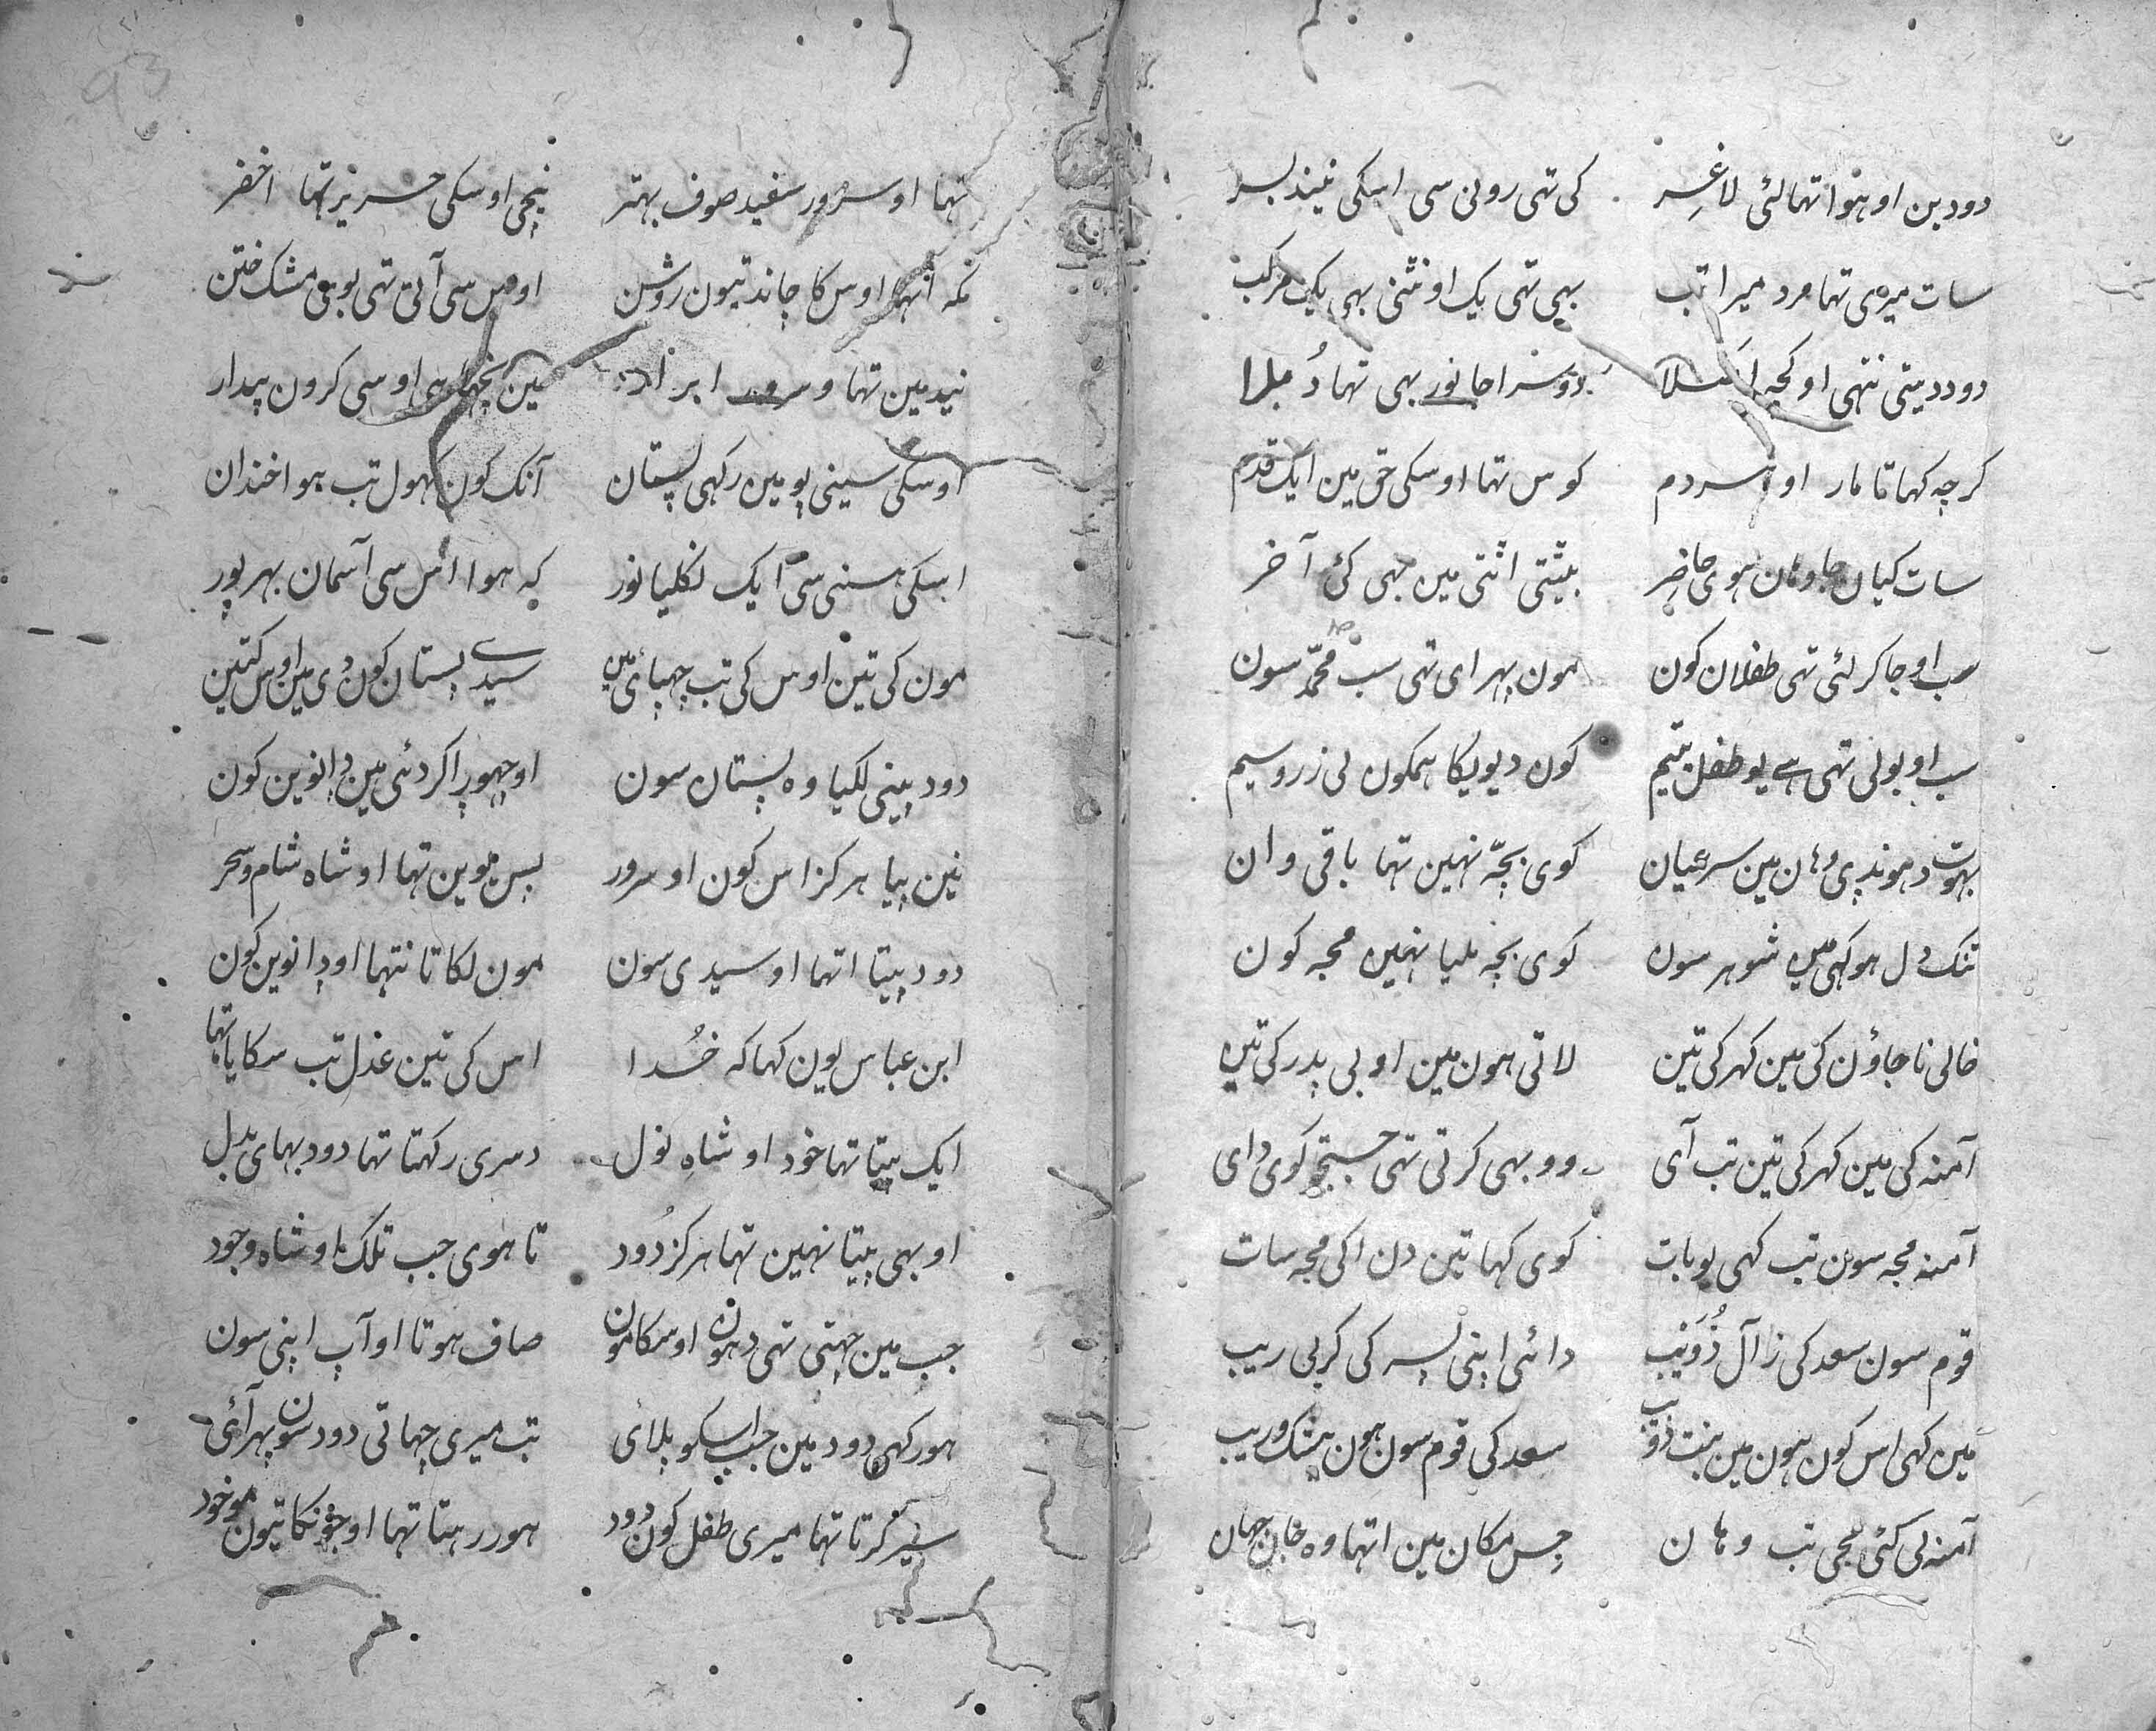 دودبن او ہوا تہا لئی لاغر کی تہی رونی سی اسکی نیند بسر
سات میری تہا مرد میرا تب بہی تہی یک اونٹنی بہی یک مرکب
دود دیتی نتہی او کچہ اصلا دوسرا جانور بہی تہا دُبلا
کرچہ کہاتا مار او سردم کوس تہا اوسکی حق مین ایک قدم
سات کیان جا وہان ہوی حاضر بیٹتی اٹتی مین بہی کئی آخر
سب او جا کر لئی تہی طفلان کون مون پہرای تہی سب محمّد سون
سب او بولی تہی ہے یو طفل یتیم کون دیویکا ہمکون بی زر و سیم
بہوت دہوندی وہان مین سر عیان کوی بچّہ نہین تہا باقی وان
تنک دل ہو کہی مین شوہر سون کوی بچہ ملیا نہین مجہ کون
خالی نا جاؤن کی مین کہر کی تین لاتی ہون مین او بی پدر کی تین
آمنہ کی مین کہر کی تین تب آی وو بہی کرتی تہی جستجو کوی دای
آمنہ مجہ سون تب کہی یو بات کوی کہا تین دن اکی مجہ سات
قوم سون سعد کی ز آل ذُوَیب دائی اپنی پسر کی کر بی ریب
مین کہی اس کون ہون مین بنت ذویب سعد کی قوم سون ہون بیشک و ریب
آمنہ لی کئی مجی تب وہان جس مکان مین اتہا وہ جان جہان
تہا اوسرور سفید صوف بہتر نیچی اوسکی حریر تہا اخضر
مکہ اتہا اوس کا چاند تیون روشن اوس سی آتی تہی بوی مشک ختن
نید مین تہا و سرور ابرار مین بچہای اوسی کرون بیدار
اوسکی سینی پو مین رکہی پستان آنک کون کہول تب ہوا خندان
اسکی ہسنی سی ایک نکلیا نور کہ ہوا اس سی آسمان بہر پور
مون کی تین اوس کی تب چہپائی مین سیدے پستان کون دی مین اوس کتین
دود پینی لکیا وہ پستان سون او چہورا کر دئی مین ڈانوین کون
نین پیا ہرکز اس کون او سرور بس موین تہا او شاہ شام و سحر
دود پیتا اتہا او سیدی سون مون لکاتا نتہا او ڈانوین کون
ابن عباس یون کہا کہ خُدا اس کی تین عدل تب سکایا تہا
ایک پیتا تہا خود او شاہِ نول دسری رکہتا تہا دود بہای بدل
او بہی پیتا نہین تہا ہرکز دُود تا ہوی جب تلک او شاہ وجود
جب مین چہتی تہی دہون اوسکا مون صاف ہوتا او آپ اپنی سون
ہور کہی دود مین جب اسکو پلائی تب میری چہاتی دود سون پہر آئی
سیر کرتا تہا میری طفل کون دود ہور رہتا تہا او جونکا تیون موجود